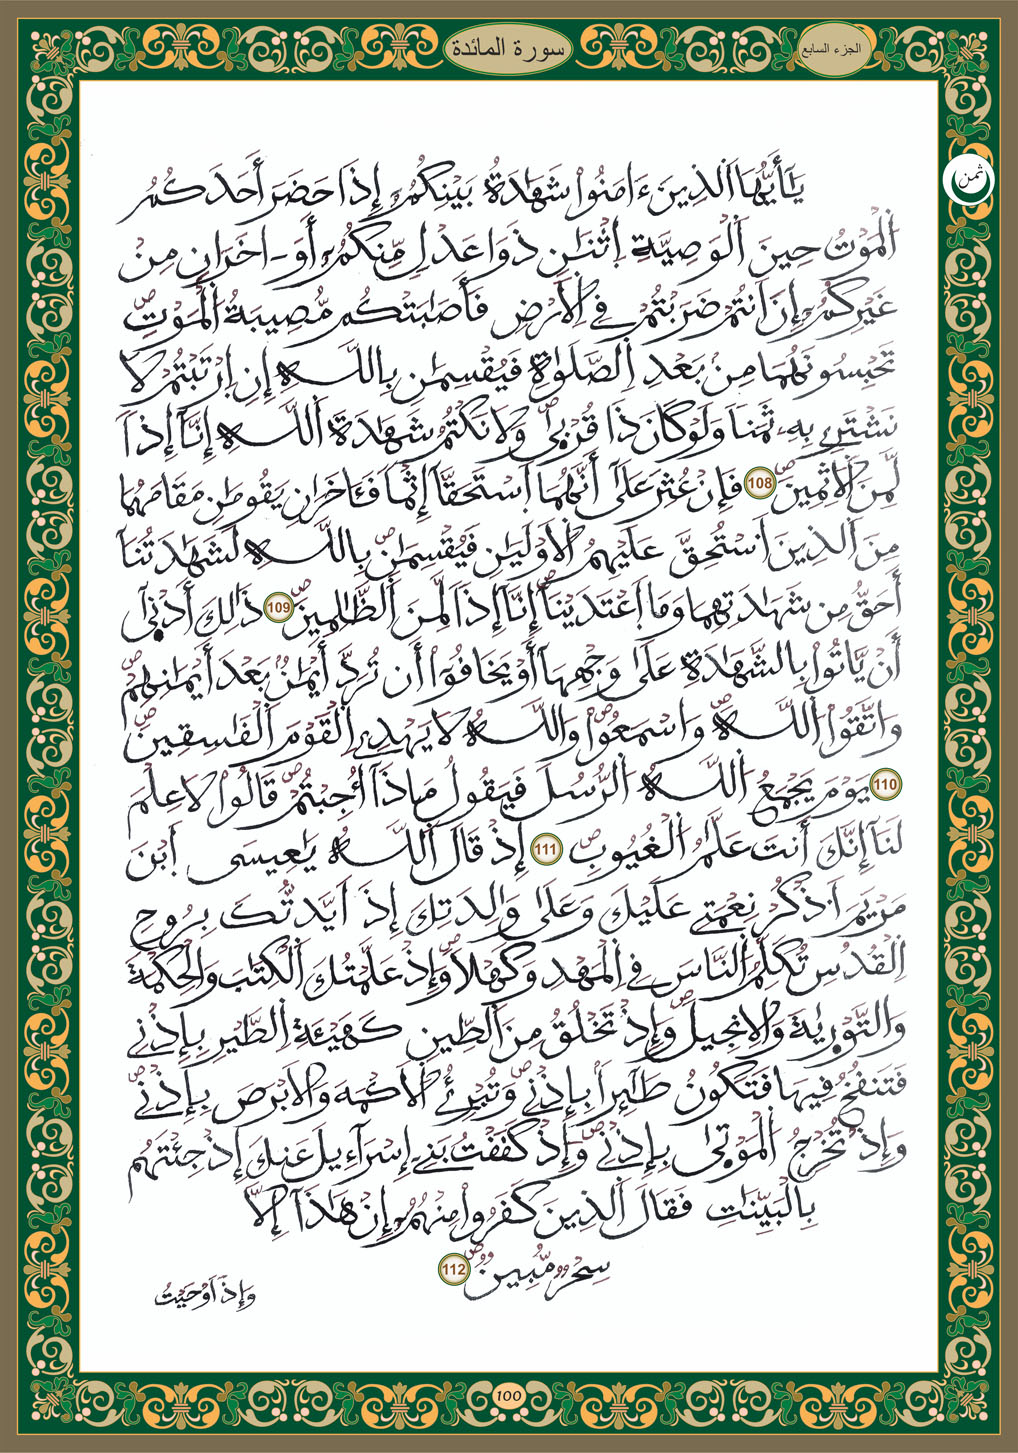 الجزء السابع
سورة المائدة
ثمن
يَٰأَيُّهَا اَ۬لذِينَ ءَامَنُواْ شَهَٰدَةُ بَيْنِكُمُۥٓ إِذَا حَضَرَ أَحَدَكُمُ
اُ۬لْمَوْتُ حِينَ اَ۬لْوَصِيَّةِ اِ۪ثْنَٰنِ ذَوَا عَدْلٖ مِّنكُمُۥٓ أَوَ اٰخَرَٰنِ مِنْ
غَيْرِكُمُۥٓ إِنَ اَنتُمْ ضَرَبْتُمْ فِے اِ۬لْأَرْضِ فَأَصَٰبَتْكُم مُّصِيبَةُ اُ۬لْمَوْتِۖ
تَحْبِسُونَهُمَا مِنۢ بَعْدِ اِ۬لصَّلَوٰةِ فَيُقْسِمَٰنِ بِاللَّهِ إِنِ اِ۪رْتَبْتُمْ لَا
نَشْتَرِے بِهِۦ ثَمَناٗ وَلَوْ كَانَ ذَا قُرْب۪يٰۖ وَلَا نَكْتُمُ شَهَٰدَةَ اَ۬للَّهِ إِنَّآ إِذاٗ
لَّمِنَ اَ۬لَاثِمِينَۖ 108 فَإِنْ عُثِرَ عَلَيٰٓ أَنَّهُمَا اَ۪سْتَحَقَّآ إِثْماٗ فَـَٔاخَرَٰنِ يَقُومَٰنِ مَقَامَهُمَا
مِنَ اَ۬لذِينَ اَ۟سْتُحِقَّ عَلَيْهِمُ اُ۬لَاوْلَيَٰنِ فَيُقْسِمَٰنِ بِاللَّهِ لَشَهَٰدَتُنَآ
أَحَقُّ مِن شَهَٰدَتِهِمَا وَمَا اَ۪عْتَدَيْنَآۖ إِنَّآ إِذاٗ لَّمِنَ اَ۬لظَّٰلِمِينَۖ 109 ذَٰلِكَ أَدْن۪يٰٓ
أَنْ يَّاتُواْ بِالشَّهَٰدَةِ عَلَيٰ وَجْهِهَآ أَوْ يَخَافُوٓاْ أَن تُرَدَّ أَيْمَٰنُۢ بَعْدَ أَيْمَٰنِهِمْۖ
وَاتَّقُواْ اُ۬للَّهَۖ وَاسْمَعُواْۖ وَاللَّهُ لَا يَهْدِے اِ۬لْقَوْمَ اَ۬لْفَٰسِقِينَۖ
110 يَوْمَ يَجْمَعُ اُ۬للَّهُ اُ۬لرُّسُلَ فَيَقُولُ مَاذَآ أُجِبْتُمْۖ قَالُواْ لَا عِلْمَ
لَنَآ إِنَّكَ أَنتَ عَلَّٰمُ اُ۬لْغُيُوبِۖ 111 إِذْ قَالَ اَ۬للَّهُ يَٰعِيسَى اَ۪بْنَ
مَرْيَمَ اَ۟ذْكُرْ نِعْمَتِے عَلَيْكَ وَعَلَيٰ وَٰلِدَتِكَ إِذَ اَيَّدتُّكَ بِرُوحِ
اِ۬لْقُدُسِ تُكَلِّمُ اُ۬لنَّاسَ فِے اِ۬لْمَهْدِ وَكَهْلاٗۖ وَإِذْ عَلَّمْتُكَ اَ۬لْكِتَٰبَ وَالْحِكْمَةَ
وَالتَّوْر۪يٰةَ وَالِانجِيلَۖ وَإِذْ تَخْلُقُ مِنَ اَ۬لطِّينِ كَهَيْـَٔةِ اِ۬لطَّيْرِ بِإِذْنِے
فَتَنفُخُ فِيهَا فَتَكُونُ طَٰٓئِراَۢ بِإِذْنِےۖ وَتُبْرِئُ اُ۬لَاكْمَهَ وَالَابْرَصَ بِإِذْنِےۖ
وَإِذْ تُخْرِجُ اُ۬لْمَوْت۪يٰ بِإِذْنِےۖ وَإِذْ كَفَفْتُ بَنِےٓ إِسْرَآءِيلَ عَنكَ إِذْ جِئْتَهُم
بِالْبَيِّنَٰتِ فَقَالَ اَ۬لذِينَ كَفَرُواْ مِنْهُمُۥٓ إِنْ هَٰذَآ إِلَّا
سِحْرٞ مُّبِينٞۖ 112
وَإِذَ اَوْحَيْتُ
100